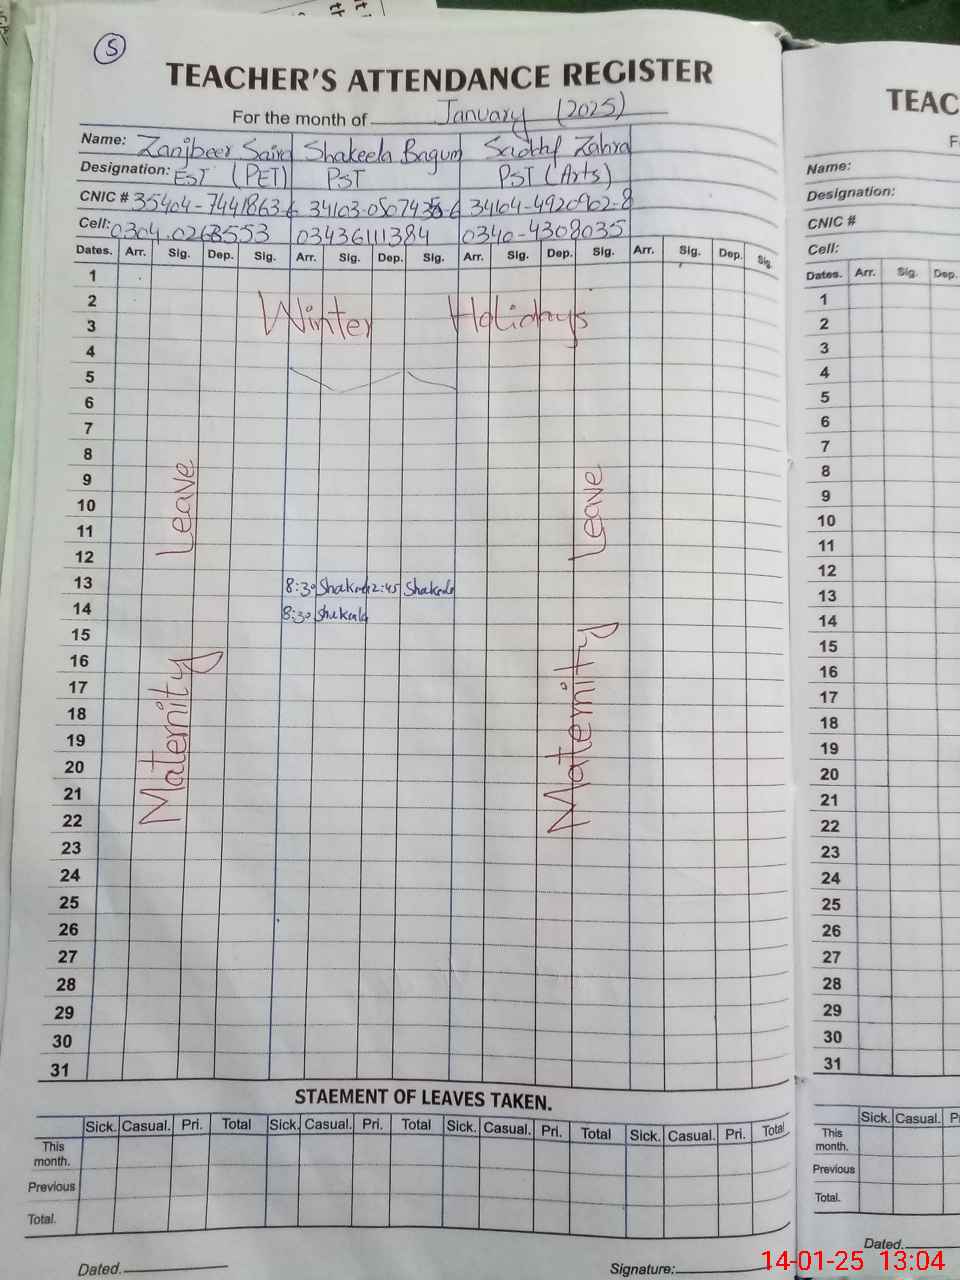 5
TEACHER'S ATTENDANCE REGISTER
For the month of January (2025)
Name: Zanjbeer Saira Shakeela Bagum Zahra
Designation: EST (PET) PST PST (Arts)
CNIC # 35404-7441863-6 34104-4920902-8
Cell: 03436111384 0340-4308035
Dates. Arr. Sig. Dep. Sig. Arr. Sig. Dep. Sig. Arr. Sig. Dep. Sig. Arr. Sig. Dep. Sig.
1
2
Winter Holidays
3
4
5
6
7
8
9
10
11
12
Leave Leave
13 8:30 2:45
14 8:30 Shakeela
15
16
17
18
19
20
21
22
Maternity Maternity
23
24
25
26
27
28
29
30
31
STAEMENT OF LEAVES TAKEN.
Sick. Casual. Pri. Total Sick. Casual. Pri. Total Sick. Casual. Pri. Total Sick. Casual. Pri. Total
This
month.
Previous
Total.
Dated. Signature:
TEAC
F
Name:
Designation:
CNIC #
Cell:
Dates. Arr. Sig. Dep.
1
2
3
4
5
6
7
8
9
10
11
12
13
14
15
16
17
18
19
20
21
22
23
24
25
26
27
28
29
30
31
Sick. Casual. P
This
month.
Previous
Total.
Dated.
14-01-25 13:04